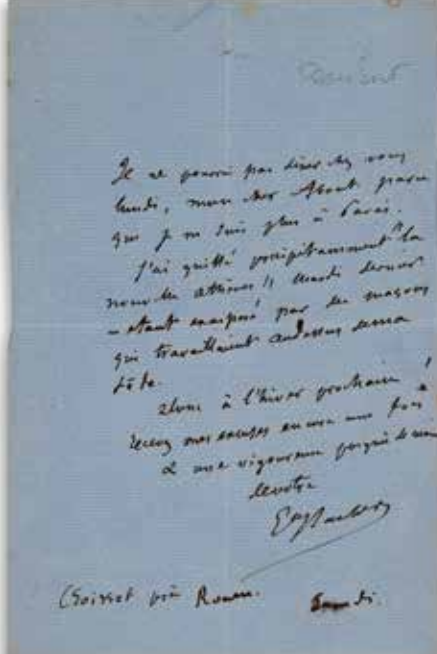 Flaubert
Je ne pourrai pas diner chez vous
lundi, mon cher About parce
que je ne suis plus à Paris.
J'ai quitté précipitamment "la
nouvelle athènes" mardi dernier
étant exaspéré par des maçons
qui travaillaient au dessus de ma
tête.
donc à l'hiver prochain !
recevez mes excuses encore une fois
& une vigoureuse poignée de main
du vôtre
Gve Flaubert
Croisset près Rouen.